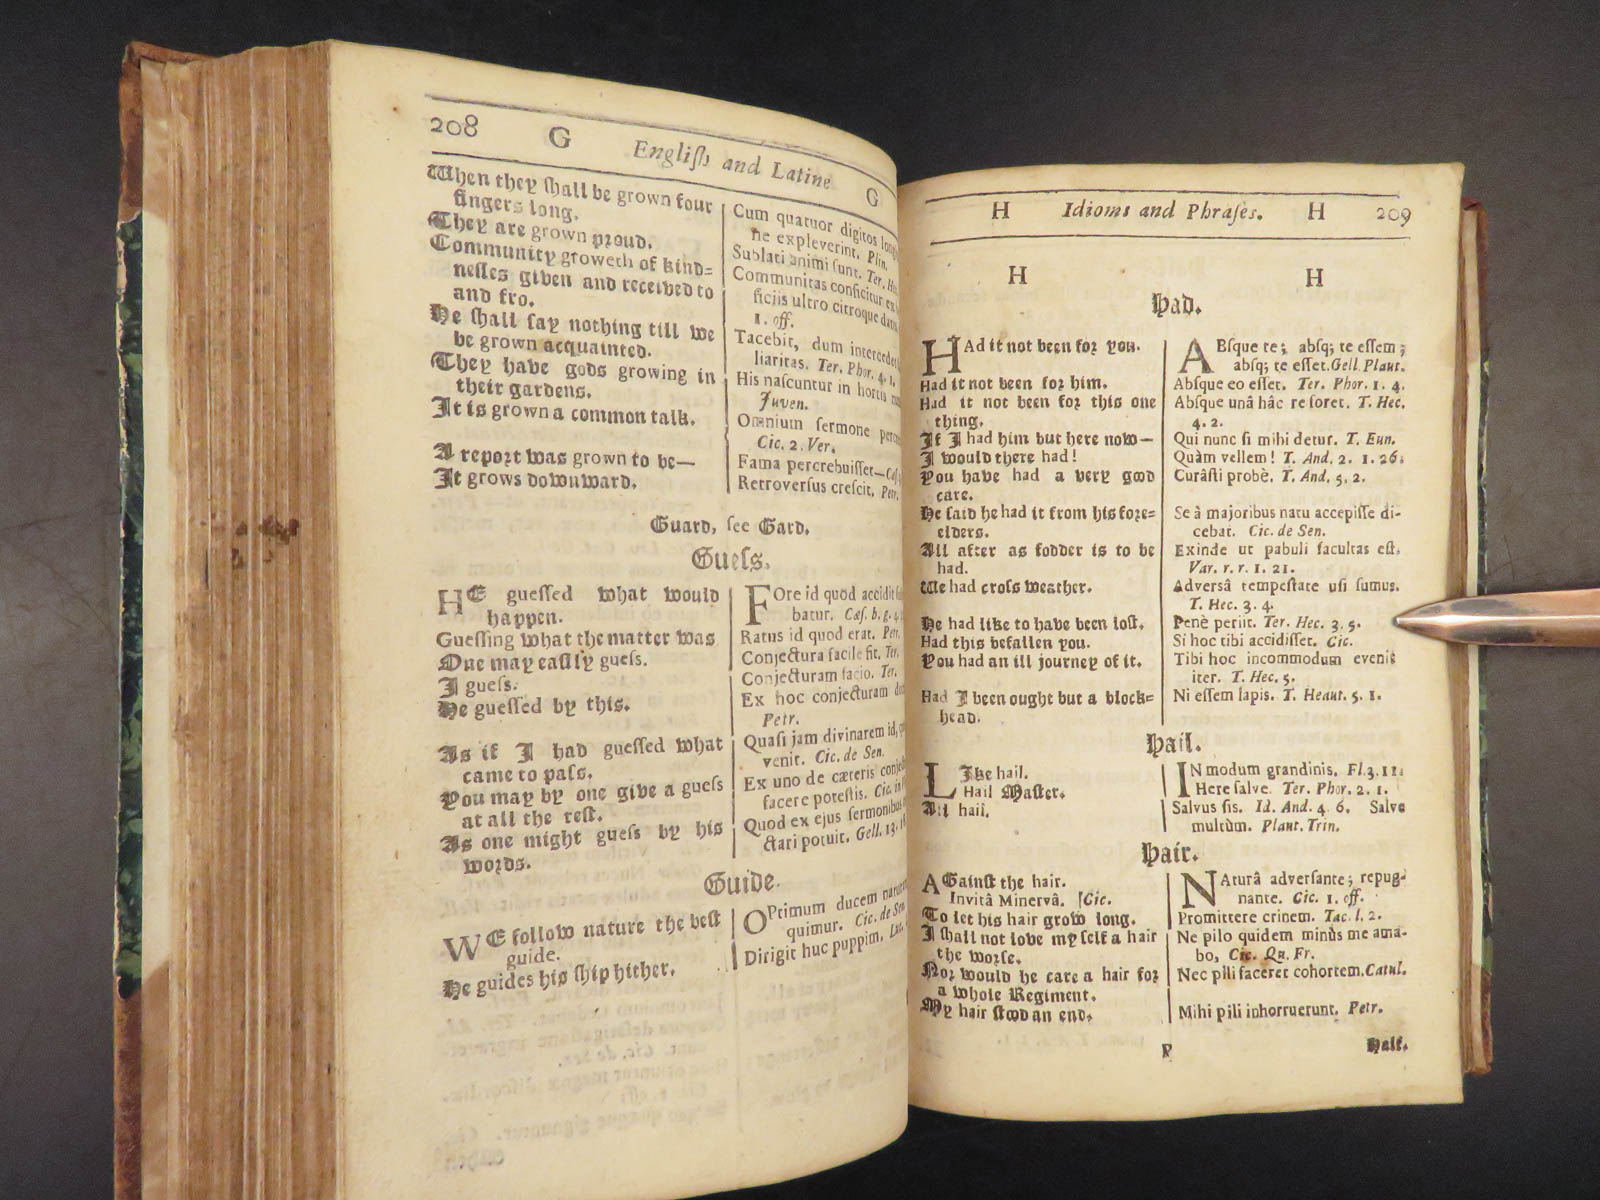 208 G Engliſh and Latine G
When they ſhall be grown four
fingers long.
They are grown proud.
Community groweth of kind=
neſſes given and received to
and fro.
He ſhall ſay nothing till we
be grown acquainted.
They have gods growing in
their gardens.
It is grown a common talk.
A report was grown to be—
It grows downward.
Cum quatuor digitos
ne expleverint. Plin.
Sublati animi ſunt. Ter.
Communitas conficitur ex
ficiis ultro citroque
1. off.
Tacebit, dum
liaritas. Ter. Phor. 4. 1.
His naſcuntur in hortis
Juven.
Omnium ſermone
Cic. 2. Ver.
Fama percrebuiſſet—
Retroverſus creſcit. Petr.
Guard, ſee Gard.
Gueſs.
HE gueſſed what would
happen.
Gueſſing what the matter was
One may eaſily gueſs.
I gueſs.
He gueſſed by this.
As if I had gueſſed what
came to paſs.
You may by one give a gueſs
at all the reſt.
As one might gueſs by his
words.
FOre id quod accidit
batur. Cæſ. b. g.
Ratus id quod erat. Petr.
Conjectura facile fit. Ter.
Conjecturam facio. Ter.
Ex hoc conjecturam
Petr.
Quaſi jam divinarem id,
venit. Cic. de Sen.
Ex uno de cæteris
facere poteſtis. Cic.
Quod ex ejus ſermonibus
ctari potuit. Gell. 13.
Guide.
WE follow nature the beſt
guide.
He guides his ſhip hither.
OPtimum ducem
quimur. Cic. de Sen.
Dirigit huc puppim.
H Idioms and Phraſes. H 209
H H
Had.
HAd it not been for you.
Had it not been for him.
Had it not been for this one
thing.
If I had him but here now—
I would there had!
You have had a very good
care.
He ſaid he had it from his fore=
elders.
All after as fodder is to be
had.
We had croſs weather.
He had like to have been loſt.
Had this befallen you.
You had an ill journey of it.
Had I been ought but a block=
head.
ABſque te; abſq; te eſſem;
abſq; te eſſet. Gell. Plaut.
Abſque eo eſſet. Ter. Phor. 1. 4.
Abſque unâ hâc re foret. T. Hec.
4. 2.
Qui nunc ſi mihi detur. T. Eun.
Quàm vellem! T. And. 2. 1. 26.
Curâſti probè. T. And. 5. 2.
Se à majoribus natu accepiſſe di-
cebat. Cic. de Sen.
Exinde ut pabuli facultas eſt.
Var. r. r. 1. 21.
Adverſâ tempeſtate uſi ſumus.
T. Hec. 3. 4.
Penè periit. Ter. Hec. 3. 5.
Si hoc tibi accidiſſet. Cic.
Tibi hoc incommodum evenit
iter. T. Hec. 5.
Ni eſſem lapis. T. Heaut. 5. 1.
Hail.
LIke hail.
Hail Maſter.
All hail.
IN modum grandinis. Fl. 3. 11.
Here ſalve. Ter. Phor. 2. 1.
Salvus ſis. Id. And. 4. 6. Salve
multùm. Plaut. Trin.
Hair.
AGainſt the hair.
Invitâ Minervâ. [Cic.
To let his hair grow long.
I ſhall not love my ſelf a hair
the worſe.
Nor would he care a hair for
a whole Regiment.
My hair ſtood an end.
NAturâ adverſante; repug-
nante. Cic. 1. off.
Promittere crinem. Tac. l. 2.
Ne pilo quidem minùs me ama-
bo, Cic. Qu. Fr.
Nec pili faceret cohortem. Catul.
Mihi pili inhorruerunt. Petr.
P Half.